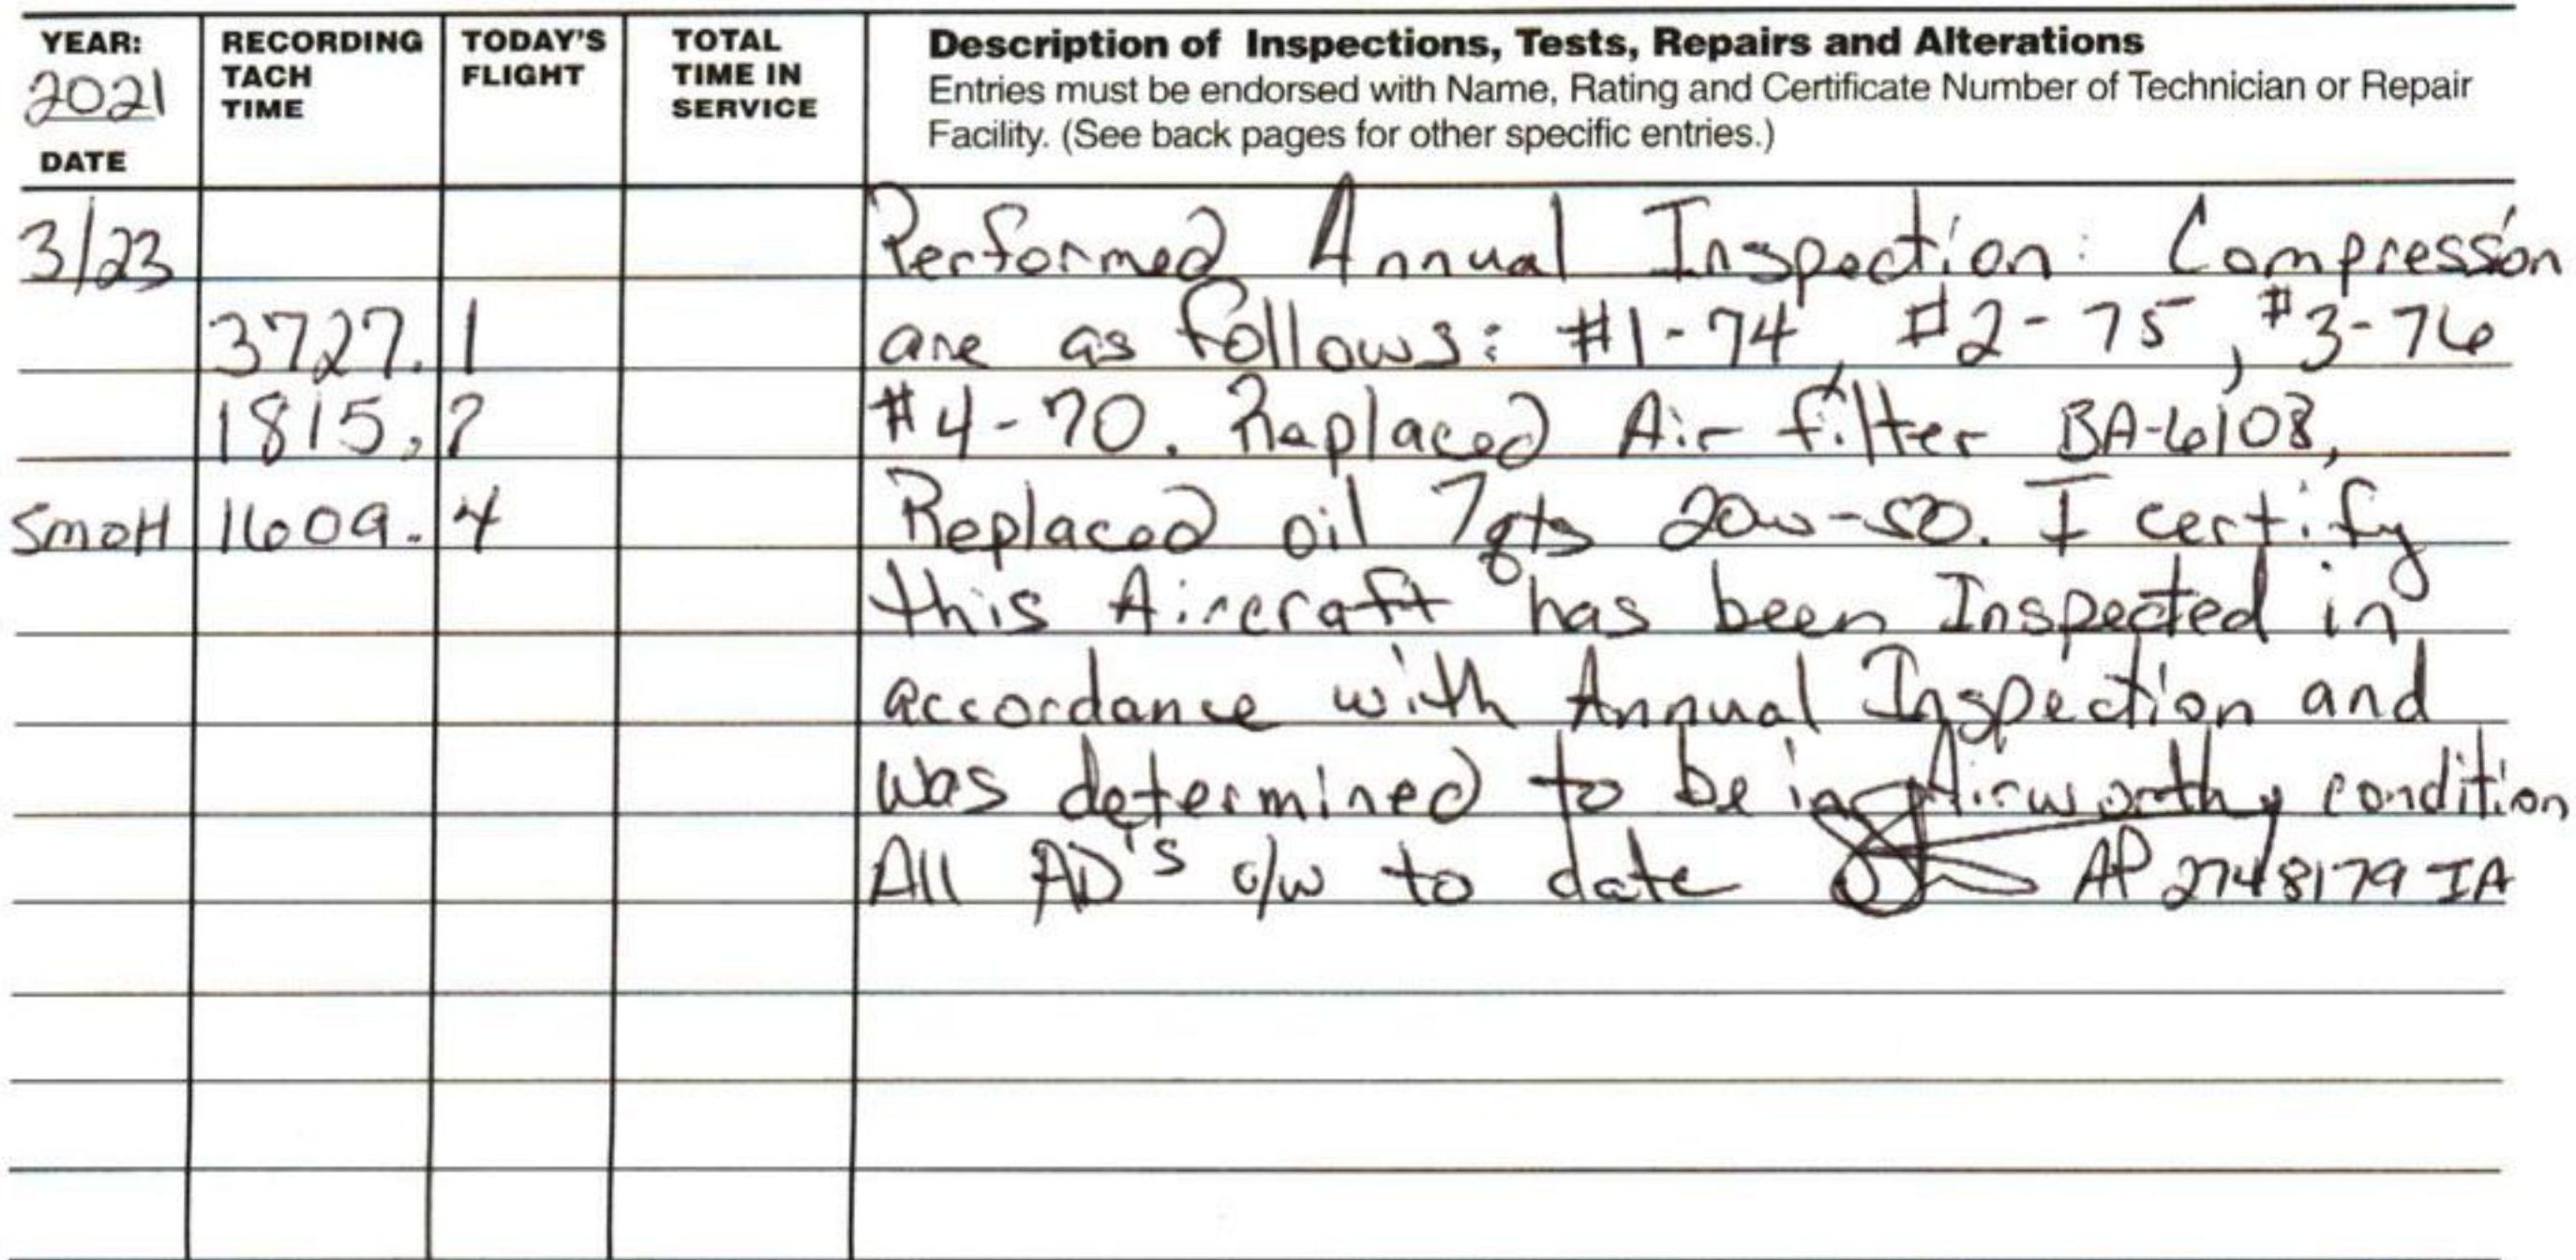 YEAR: 2021 DATE RECORDING TACH TIME TODAY'S FLIGHT TOTAL TIME IN SERVICE
Description of Inspections, Tests, Repairs and Alterations
Entries must be endorsed with Name, Rating and Certificate Number of Technician or Repair
Facility. (See back pages for other specific entries.)
3/23 Performed Annual Inspection: Compression
3727.1 are as follows: #1-74, #2-75, #3-76
1815.7 #4-70. Replaced Air filter BA-6108,
SMOH 1609.4 Replaced oil 7qts 20w-50. I certify
this Aircraft has been Inspected in
accordance with Annual Inspection and
was determined to be in Airworthy condition
All AD's c/w to date AP 2748179 IA